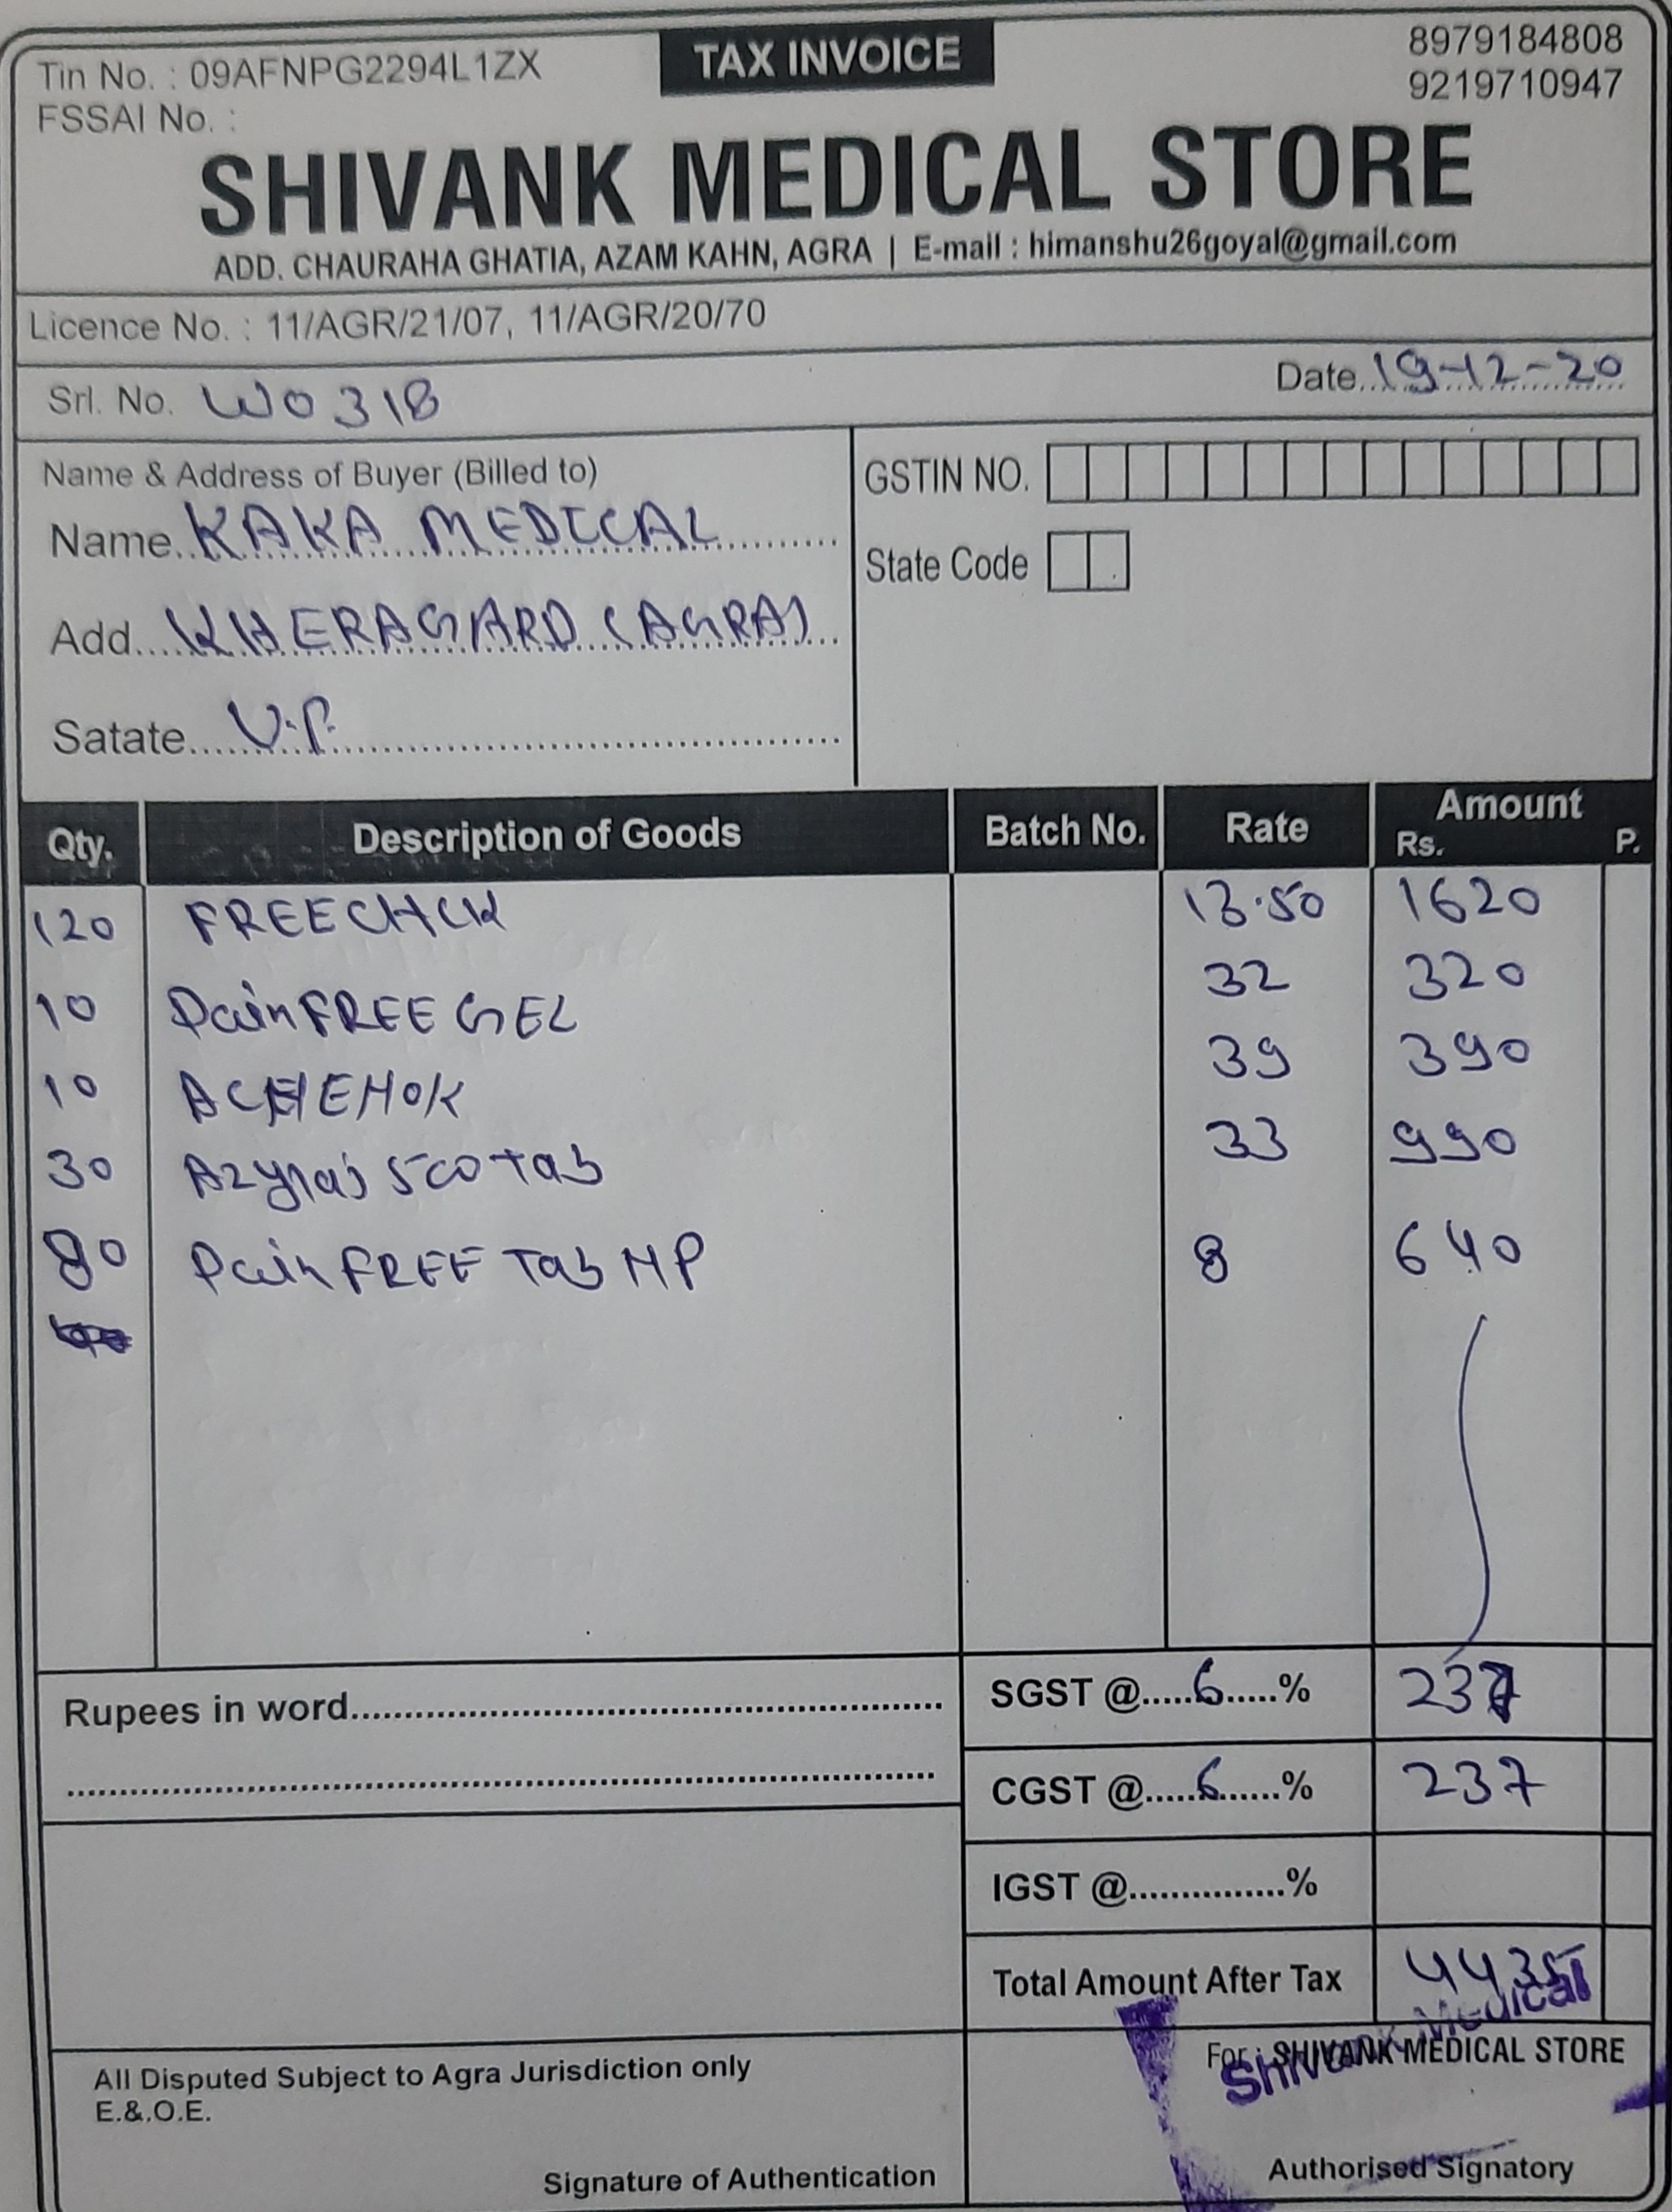 TAX INVOICE
Tin No. : 09AFNPG2294L1ZX
8979184808
FSSAI No. :
9219710947
SHIVANK MEDICAL STORE
ADD. CHAURAHA GHATIA, AZAM KAHN, AGRA | E-mail : himanshu26goyal@gmail.com
Licence No. : 11/AGR/21/07, 11/AGR/20/70
Srl. No. W0318
Date 19-12-20
Name & Address of Buyer (Billed to)
GSTIN NO.
Name KAKA MEDICAL
State Code
Add KHERAGARD (AGRA)
Satate U.P.
Qty. Description of Goods Batch No. Rate Amount Rs. P.
120 FREECHCK 13.50 1620
10 PainFREE GEL 32 320
10 ACHEHOK 39 390
30 500 Tab 33 990
80 PainFREE Tab HP 8 640
Rupees in word
SGST @ 6 % 237
CGST @ 6 % 237
IGST @ %
Total Amount After Tax 4435
All Disputed Subject to Agra Jurisdiction only
E.&.O.E.
For : SHIVANK MEDICAL STORE
Shivank Medical
Signature of Authentication
Authorised Signatory